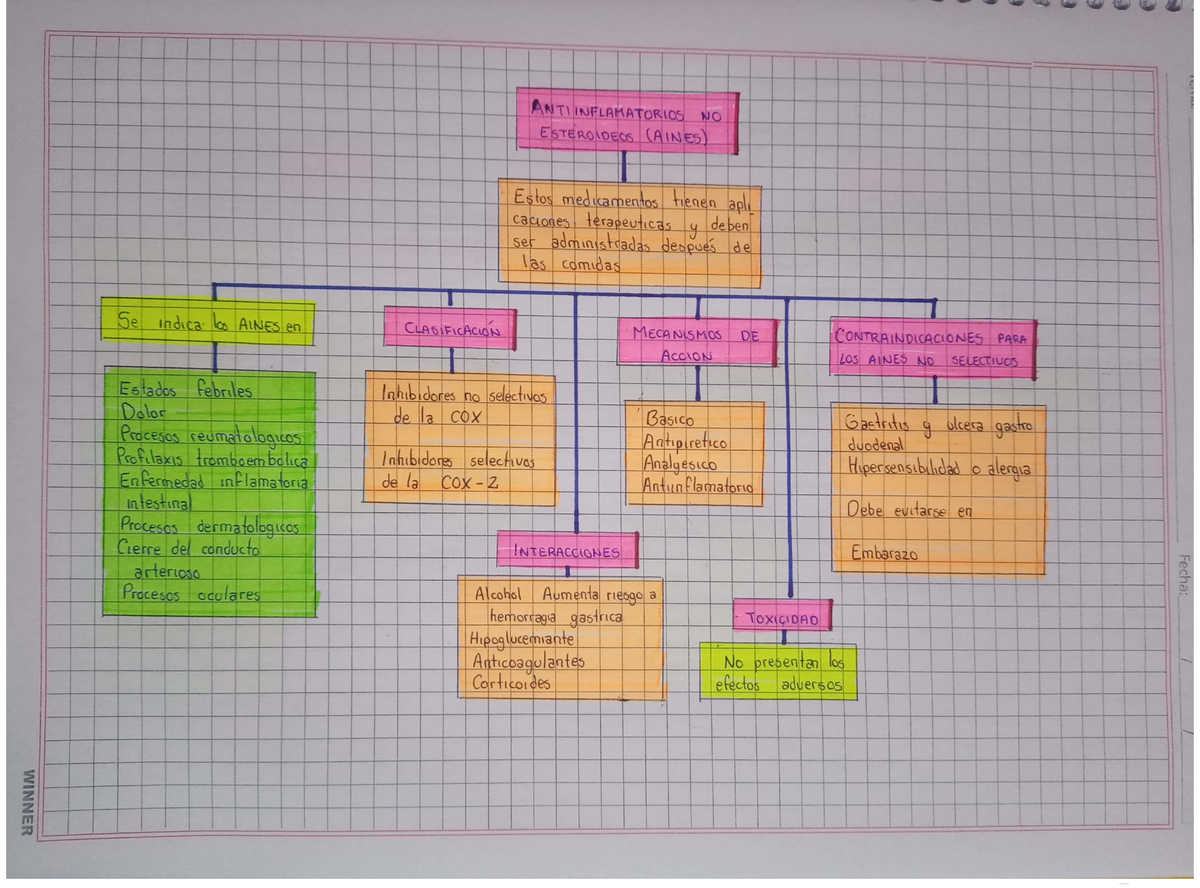 ANTIINFLAMATORIOS NO
ESTEROIDEOS (AINES)
Estos medicamentos tienen apli
caciones terapeuticas y deben
ser administradas después de
las comidas
Se indica los AINES en
Estados febriles
Dolor
Procesos reumatologicos
Profilaxis tromboembolica
Enfermedad inflamatoria
intestinal
Procesos dermatologicos
Cierre del conducto
arterioso
Procesos oculares
CLASIFICACIÓN
Inhibidores no selectivos
de la COX
Inhibidores selectivos
de la COX-2
INTERACCIONES
Alcohol Aumenta riesgo a
hemorragia gastrica
Hipoglucemiante
Anticoagulantes
Corticoides
MECANISMOS DE
ACCION
Basico
Antipiretico
Analgesico
Antiinflamatorio
TOXICIDAD
No presentan los
efectos adversos
CONTRAINDICACIONES PARA
LOS AINES NO SELECTIVOS
Gastritis y ulcera gastro
duodenal
Hipersensibilidad o alergia
Debe evitarse en
Embarazo
Fecha:
WINNER